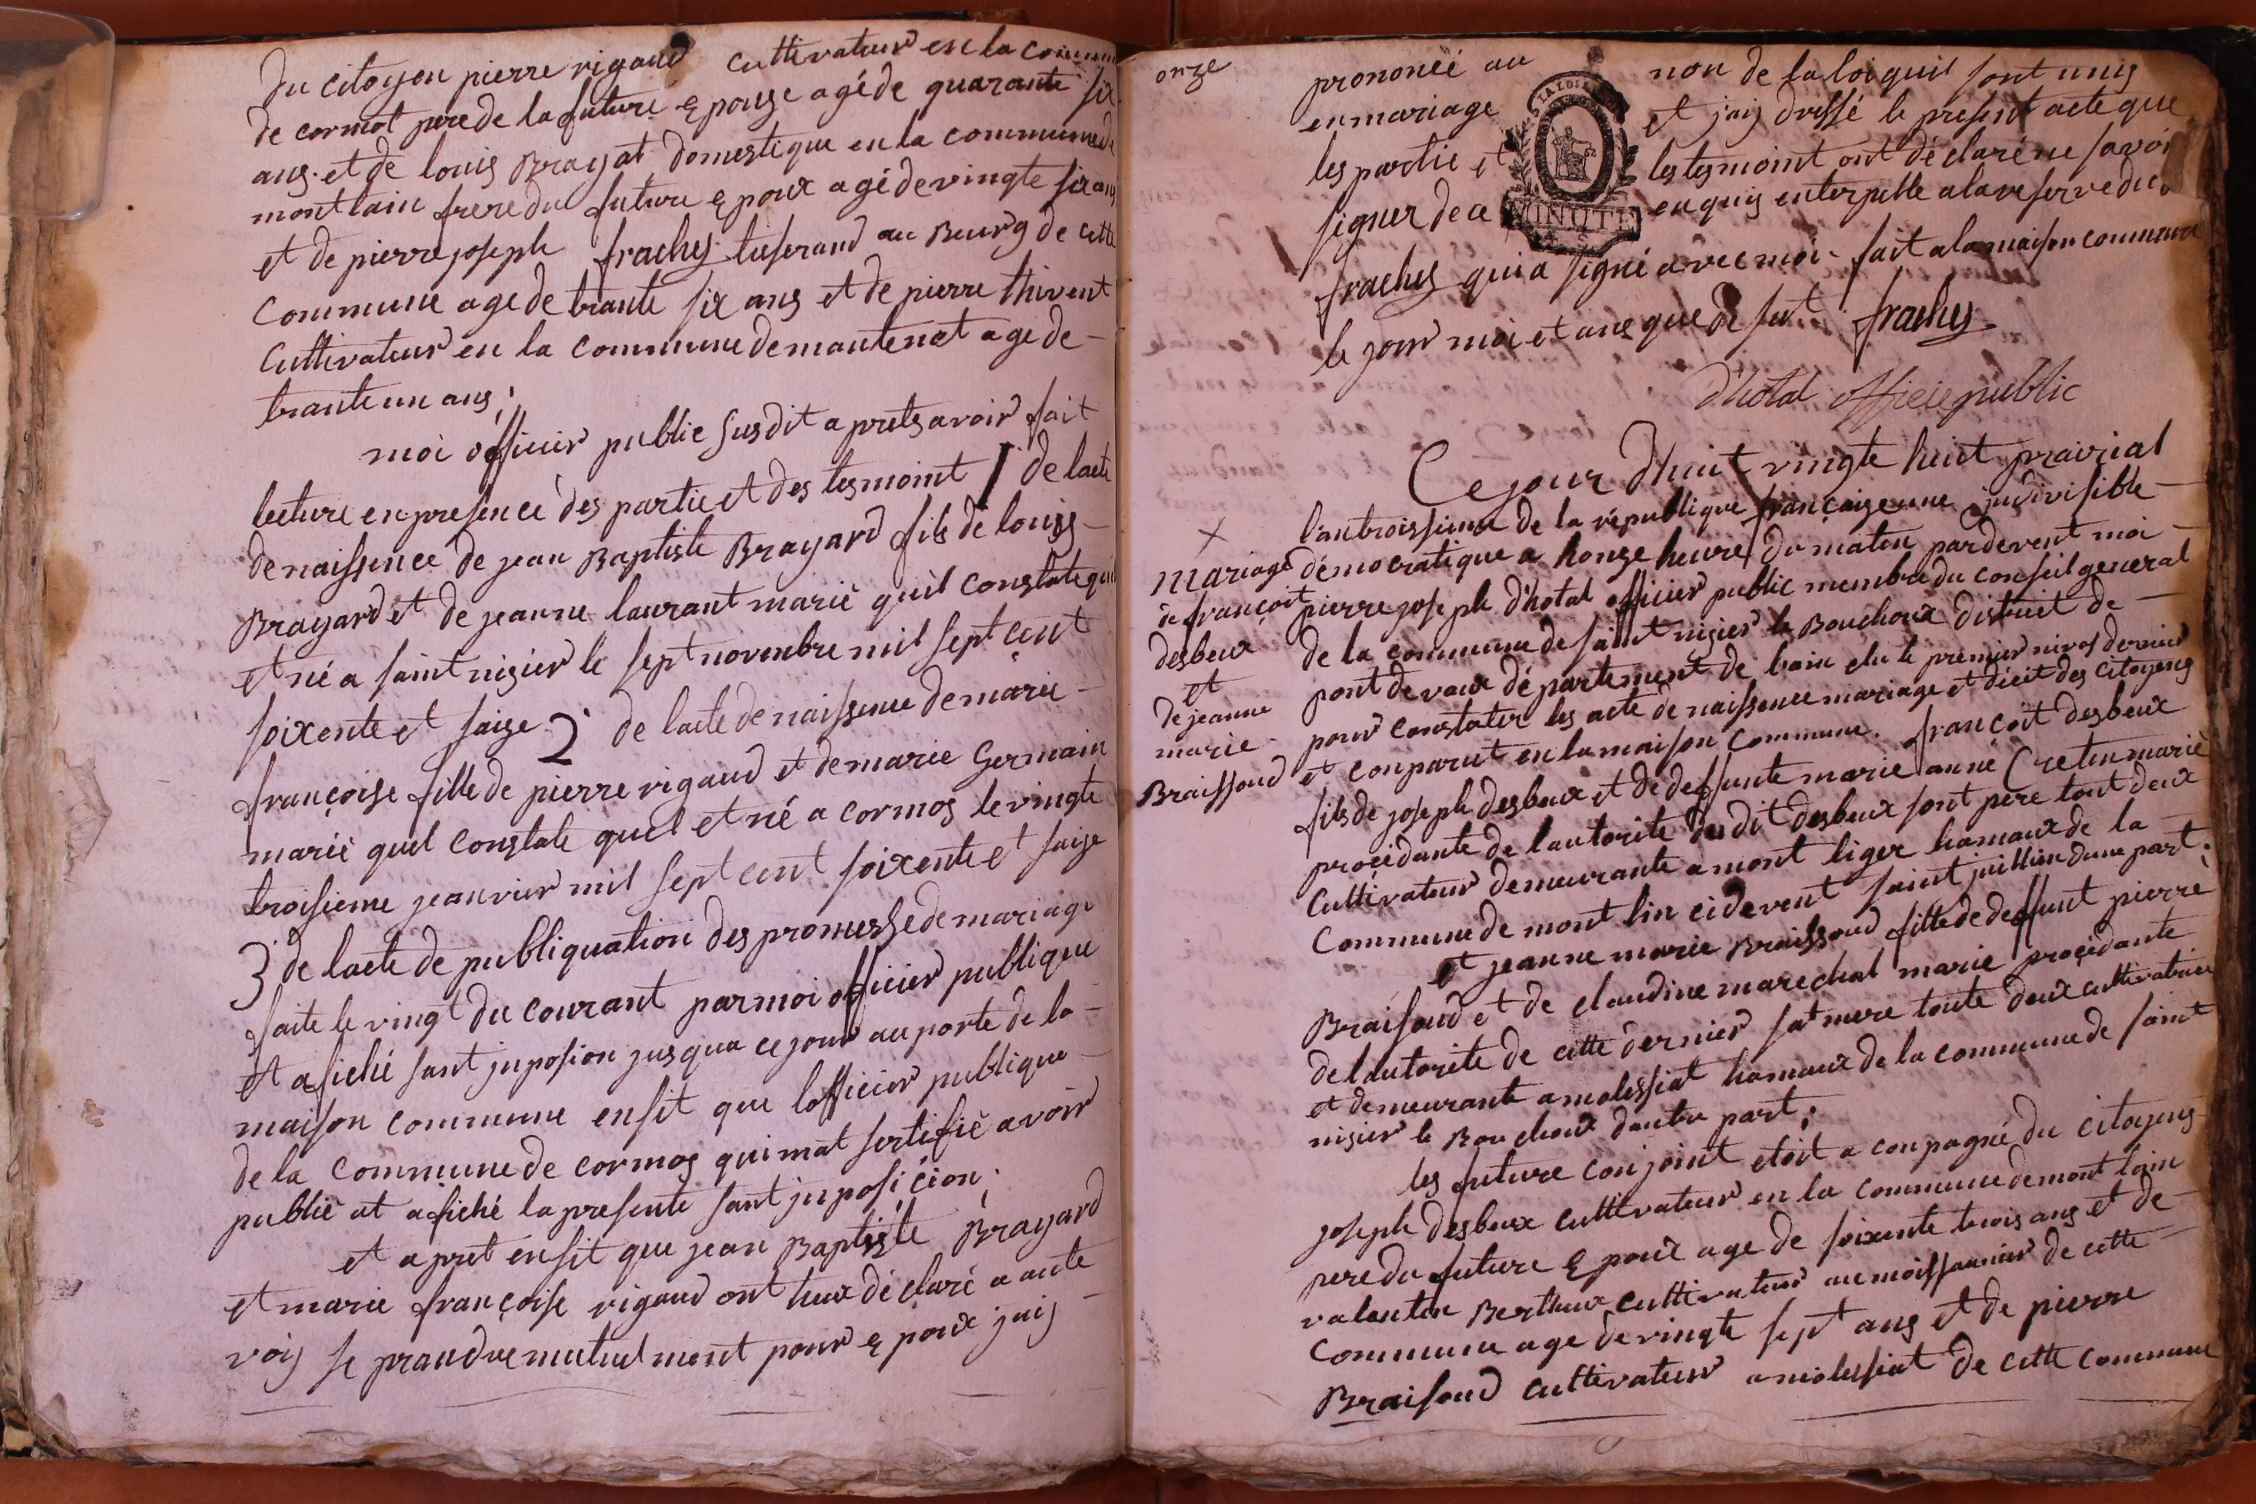 du citoyen pierre rigaud cultivateur en la commune
de cormot pere de la future epouze agé de quarante six
ans. et de louis Brayat domestique en la commune de
montlain frere du future epoux agé de vingte six ans
et de pierre joseph frachey tiserand au Bourg de cette
commune age de trante six ans et de pierre thivent
cultivateur en la commune de mantenot age de
trante un ans;
moi officier public susdit a pres avoir fait
lecture en presence des partie et des tesmoint 1° de lacte
de naissence de jean Baptiste Brayard fils de louis
Brayard et de jeanne laurant marié quil constate qui
et né a saint nisier le sept novembre mil sept cent
soixente et saize 2° de lacte de naissence de marie
françoise fille de pierre rigaud et de marie Germain
marié quel constate quel et né a cormos le vingte
troisieme jeanvier mil sept cent soixente et saize
3° de lacte de publiquation des promesse de mariage
faite le vingt du courant par moi officier publique
et afiché sant jnposion jusqua ce jour au porte de la
maison commune ensit que lofficier publique
de la commune de cormos qui mat sertifié avoir
publié at afiché la presente sant jnposicion;
et a pret ensit que jean Baptiste Brayard
et marie françoise rigaud ont heux déclaré a aute
voij se prandre mutuelment pour epoux jaij
onze
prononcé au non de la loi quil sont unis
en mariage et jaij dressé le present acte que
les partie et les tesmoint ont déclaré ne savoir
signer de ce enquis enterpellé a la reserve du
LA LOI
MINUTE
frachey qui a signé avec moi. fait a la maison commune
le jour moi et ans que de sut frachey
d'hotal officie public
Ce jour d'huit vingte huit prairial
l'an troissieme de la république françaize une jndivisible
démocratique a honze heure du maten par devent moi
pierre joseph d'hotal officier public membre du conseil general
de la commune de saint nisier le Bouchoux district de
pont de vaux département de lain elu le premier nivos dernier
pour constater les acte de naissence mariage et décit des citoyens
et conparut en la maison commune. françoit desbeux
fils de joseph desbeux et de deffunte marie anne Cretin marié
procédante de lautorité du dit desbeux sont père tout deux
cultivateur demeurante a mont liger hamaux de la
commune de mont lin cidevent saint juillien dune part;
et jeanne marie Braissoud fille de deffunt pierre
Braisoud et de claudine marechal marié procédante
de lautorite de cette dernier sat mere toute deux cultivatrice
et demeurante a molessiat hamaux de la commune de saint
nisier le Bouchoux dautre part;
les future conjoint etoit a conpagné du citoyens
joseph desbeux cultivateur en la commune de mont lain
pere du future epoux age de soixente trois ans et de
valenten Berthux cultivateur au moissonnier de cette
commune age de vingte sept ans et de pierre
Braisoud cultivateur a molessiat de cette commune
Mariage
de françoit
desbeux
et
de jeanne
marie
Braissoud